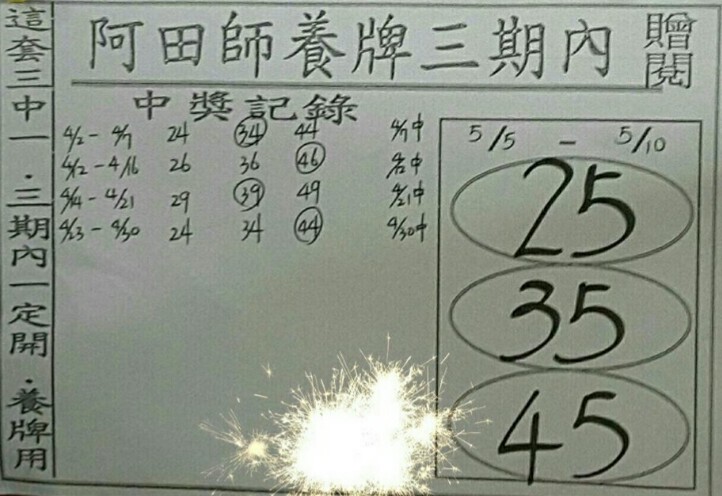 阿田師養牌三期內
贈閱
這套三中一．三期內一定開．養牌用
中獎記錄
4/2 - 4/7 24 34 44 4/7中
4/12 - 4/16 26 36 46
4/14 - 4/21 29 39 49 4/21中
4/23 - 4/30 24 34 44 4/30中
5/5 - 5/10
25
35
45